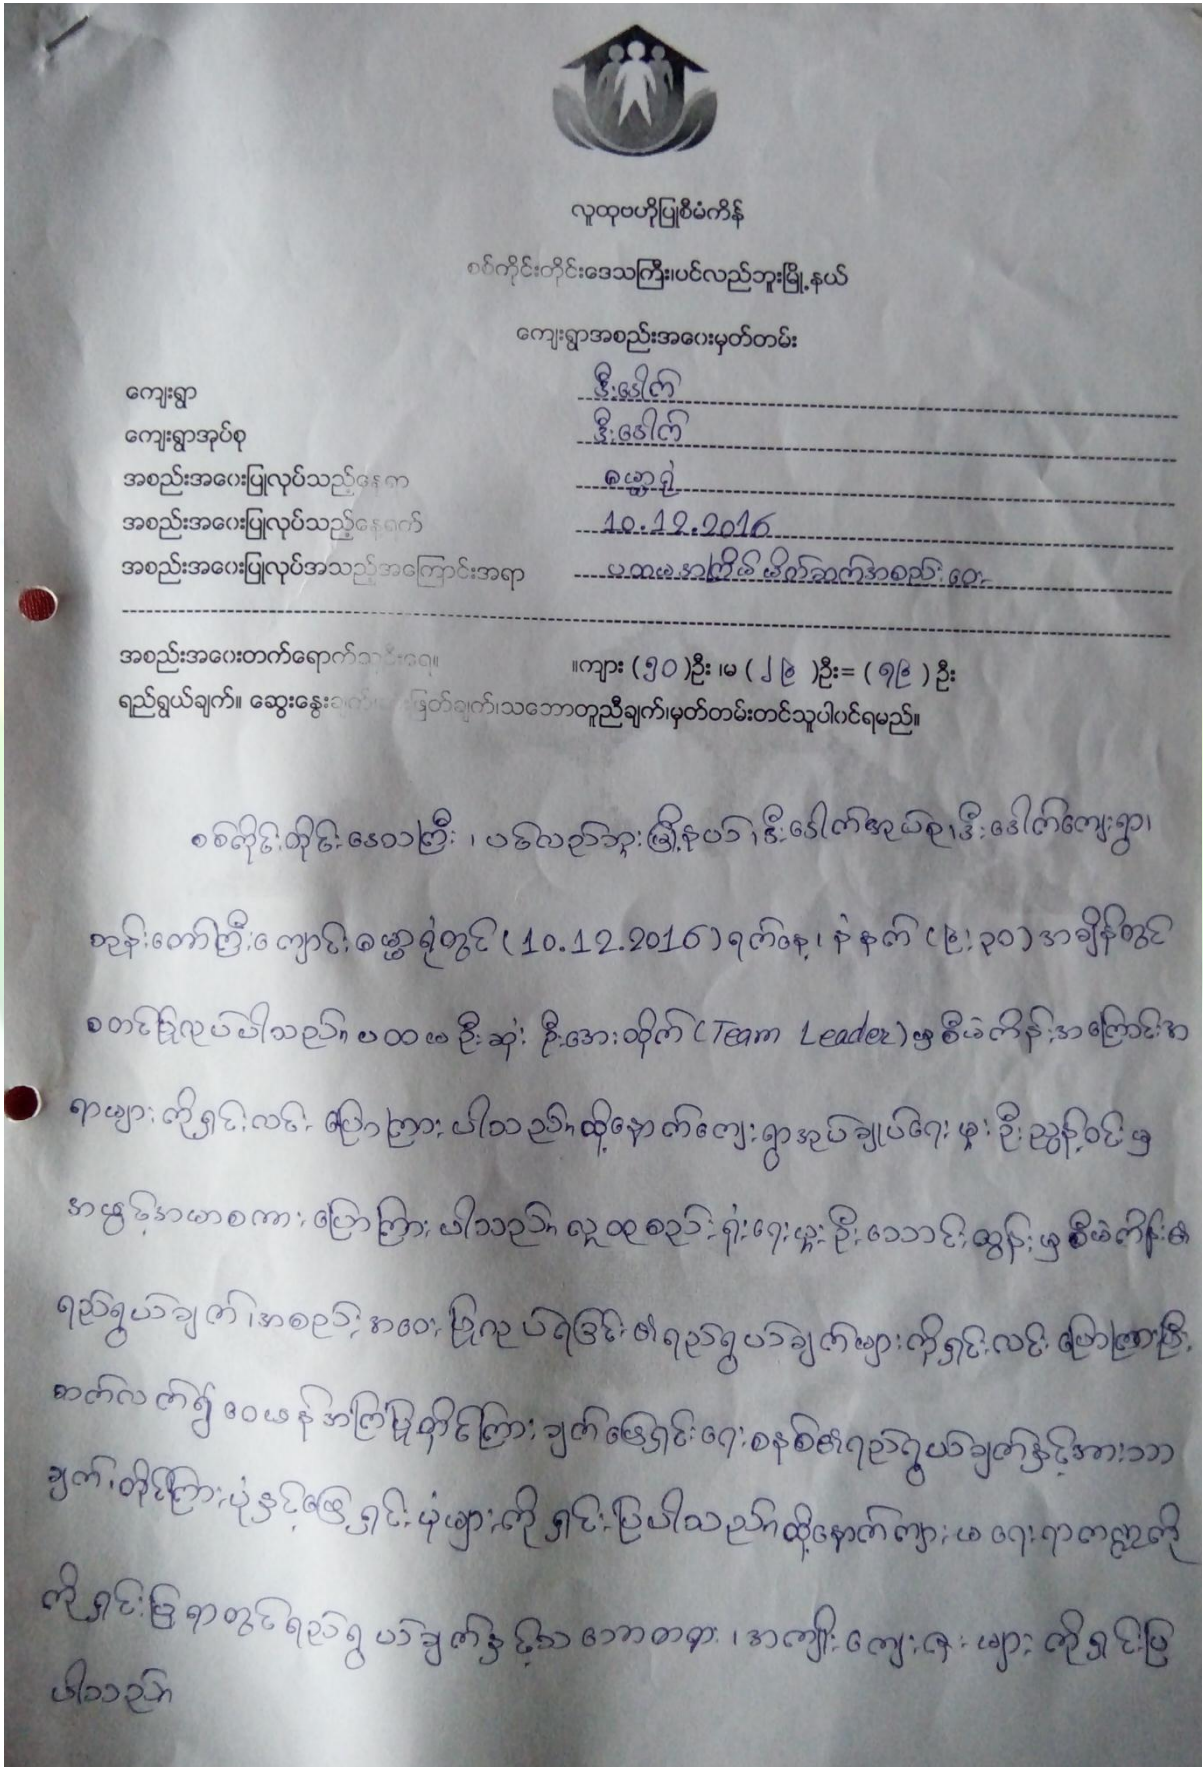 လူထုဗဟိုပြုစီမံကိန်
စစ်ကိုင်းတိုင်းဒေသကြီး၊ပင်လည်ဘူးမြို့နယ်
ကျေးရွာအစည်းအဝေးမှတ်တမ်း
ကျေးရွာ ဒီးဒေါက်
ကျေးရွာအုပ်စု ဒီးဒေါက်
အစည်းအဝေးပြုလုပ်သည့်နေရာ ဓမ္မာရုံ
အစည်းအဝေးပြုလုပ်သည့်နေ့ရက် 10.12.2016
အစည်းအဝေးပြုလုပ်အသည့်အကြောင်းအရာ ပထမအကြိမ်မိတ်ဆက်အစည်းဝေး
အစည်းအဝေးတက်ရောက်သူဦးရေ။ ။ကျား (၅၀)ဦး ၊မ (၂၉ )ဦး= (၇၉ ) ဦး
ရည်ရွယ်ချက်။ ဆွေးနွေးချက်၊ဆုံးဖြတ်ချက်၊သဘောတူညီချက်၊မှတ်တမ်းတင်သူပါဝင်ရမည်။
စစ်ကိုင်းတိုင်းဒေသကြီး ၊ ပင်လည်ဘူးမြို့နယ်၊ ဒီးဒေါက်အုပ်စု၊ ဒီးဒေါက်ကျေးရွာ၊
ဘုန်းတော်ကြီးကျောင်းဓမ္မာရုံတွင် (10.12.2016) ရက်နေ့၊ နံနက် (၉:၃၀) အချိန်တွင်
စတင်ပြုလုပ်ပါသည်။ ပထမဦးဆုံး ဦးအေးထိုက် (Team Leader) မှ စီမံကိန်းအကြောင်းအ
ရာများကိုရှင်းလင်း ပြောကြားပါသည်။ ထို့နောက်ကျေးရွာအုပ်ချုပ်ရေးမှူး ဦးညွန့်ဝင်းမှ
အဖွင့်အမှာစကားပြောကြားပါသည်။ လူထုစည်းရုံးရေးမှူး ဦးသောင်းထွန်းမှ စီမံကိန်း၏
ရည်ရွယ်ချက်၊အစည်းအဝေးပြုလုပ်ရခြင်း၏ရည်ရွယ်ချက်များကိုရှင်းလင်းပြောကြားပြီး
ဆက်လက်၍ ဝေဖန်အကြံပြုတိုင်ကြားချက်ဖြေရှင်းရေးစနစ်၏ရည်ရွယ်ချက်နှင့်အားသာ
ချက်၊ တိုင်ကြားပုံနှင့်ဖြေရှင်းပုံများကို ရှင်းပြပါသည်။ ထို့နောက်ကျား မ ရေးရာကဏ္ဍကို
ကိုရှင်းပြရာတွင်ရည်ရွယ်ချက်နှင့်သဘောတရား ၊ အကျိုးကျေးဇူးများကိုရှင်းပြ
ပါသည်။